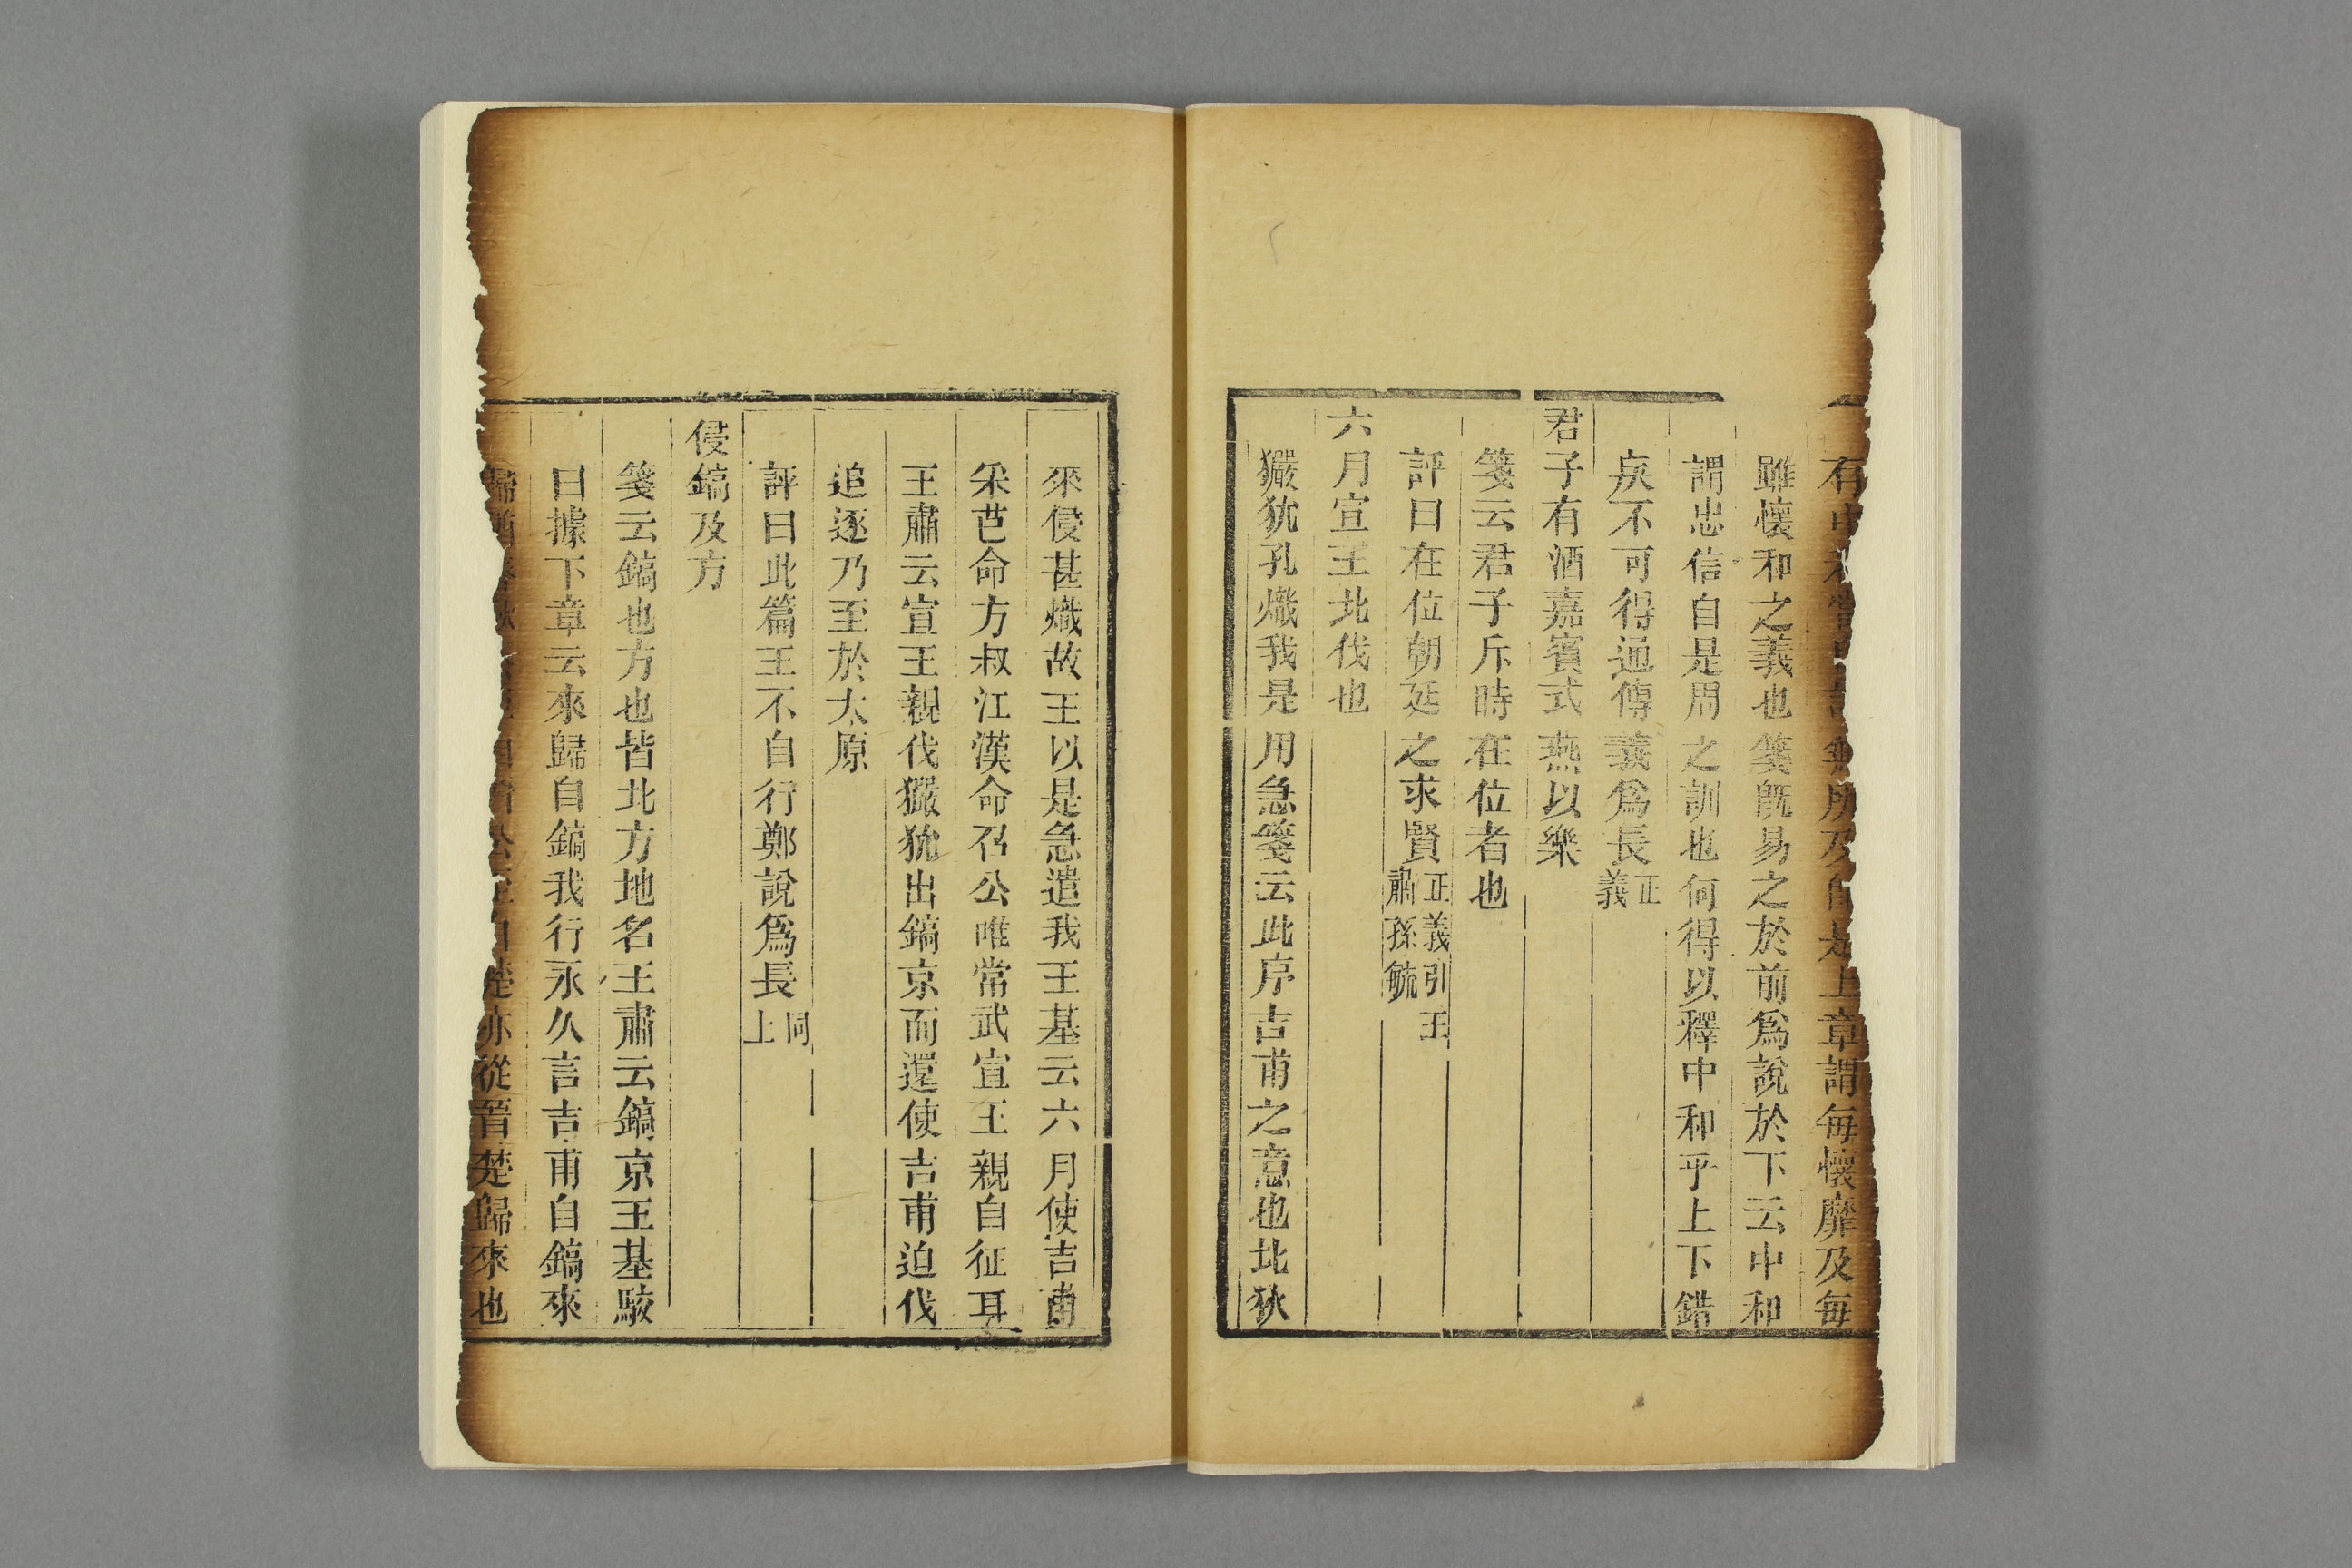 有中和當自謂無所及自是上章謂每懷靡及每
雖懷和之義也箋旣易之於前爲說於下云中和
謂忠信自是周之訓也何得以釋中和乎上下錯
戾不可得通傳義爲長正義
君子有酒嘉賓式燕以樂
箋云君子斥時在位者也
評曰在位朝廷之求賢正義引王肅孫毓
六月宣王北伐也
玁狁孔熾我是用急箋云此序吉甫之意也北狄
來侵甚熾故王以是急遣我王基云六月使吉甫
采芑命方叔江漢命召公唯常武宣王親自征耳
王肅云宣王親伐玁狁出鎬京而還使吉甫迫伐
追逐乃至於大原
評曰此篇王不自行鄭說爲長同上
侵鎬及方
箋云鎬也方也皆北方地名王肅云鎬京王基駮
曰據下章云來歸自鎬我行永久言吉甫自鎬來
歸猶春秋公至自晉公至自楚亦從晉楚歸來也